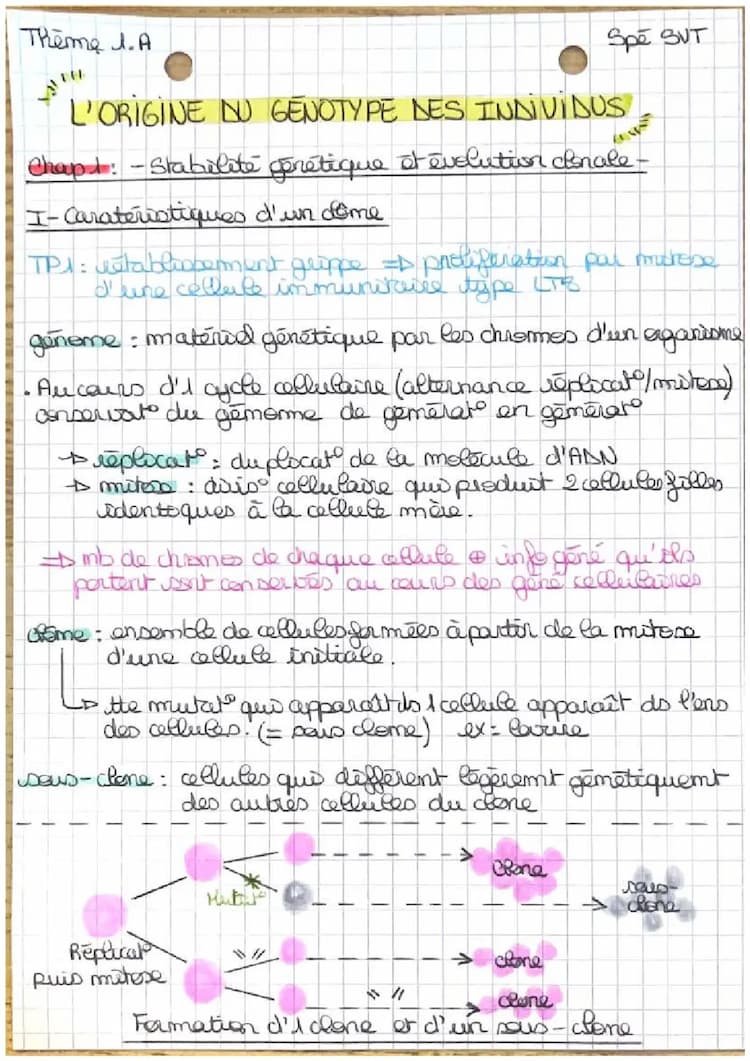 Thème 1.A
Spé SVT
L'ORIGINE DU GÉNOTYPE DES INDIVIDUS
Chap 1 : - Stabilité génétique et évolution clonale -
I - Caratéristiques d'un clône
TP1 : établissement grippe => prolifération par mitose
d'une cellule immunitaire type LT8
génome : matériel génétique par les chromes d'un organisme
• Au cours d'1 cycle cellulaire (alternance réplicat°/mitose)
conservat° du génome de générat° en générat°
→ réplicat° : duplicat° de la molécule d'ADN
→ mitose : divis° cellulaire qui produit 2 cellules filles
identiques à la cellule mère.
=> nb de chromes de chaque cellule ⊕ info géné qu'ils
portent sont conservés au cours des géné cellulaires
clône : ensemble de cellules formées à partir de la mitose
d'une cellule initiale.
↳ tte mutat° qui apparaît ds 1 cellule apparaît ds l'ens
des cellules. (= sous clone) ex =
sous-clone : cellules qui diffèrent légèremt génétiquemt
des autres cellules du clone
clone
Mutat°
sous-
clone
Réplicat°
puis mitose
" "
clone
" "
clone
Formation d'1 clone et d'un sous-clone